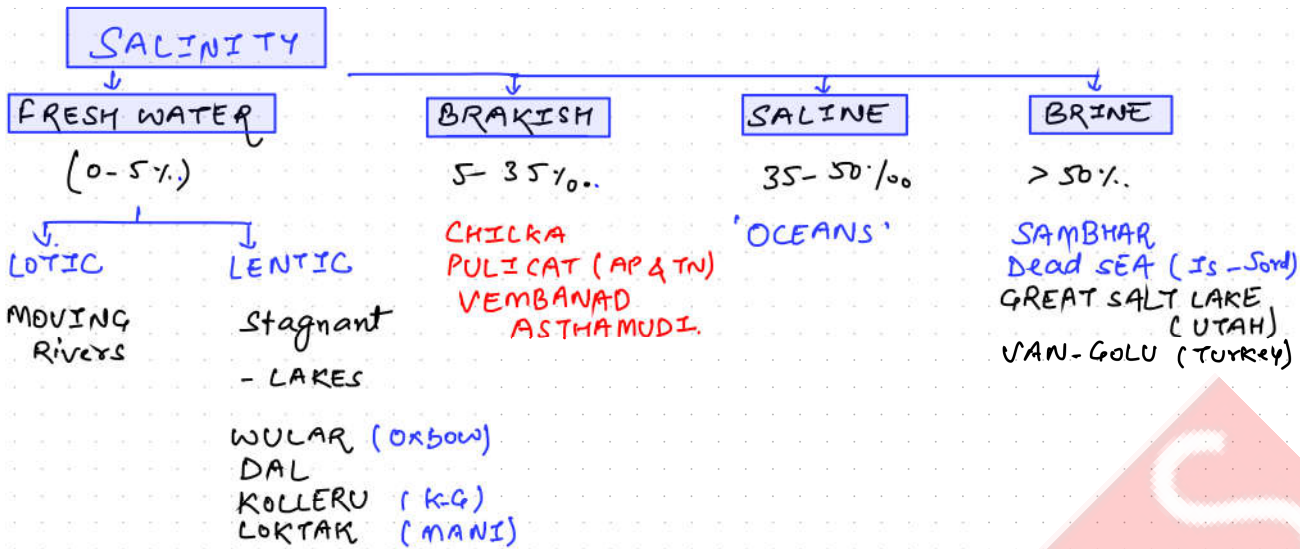 SALINITY
FRESH WATER
(0-5%.)
LOTIC
MOVING
Rivers
LENTIC
Stagnant
- LAKES
WULAR (OXBOW)
DAL
KOLLERU (K-G)
LOKTAK (MANI)
BRAKISH
5-35%..
CHILKA
PULICAT (AP & TN)
VEMBANAD
ASTHAMUDI.
SALINE
35-50%00
'OCEANS'
BRINE
> 50%.
SAMBHAR
Dead SEA (Is-Jord)
GREAT SALT LAKE
(UTAH)
VAN-GOLU (Turkey)